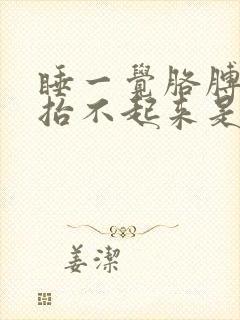 睡一覺胳膊
抬不起來是
姜潔